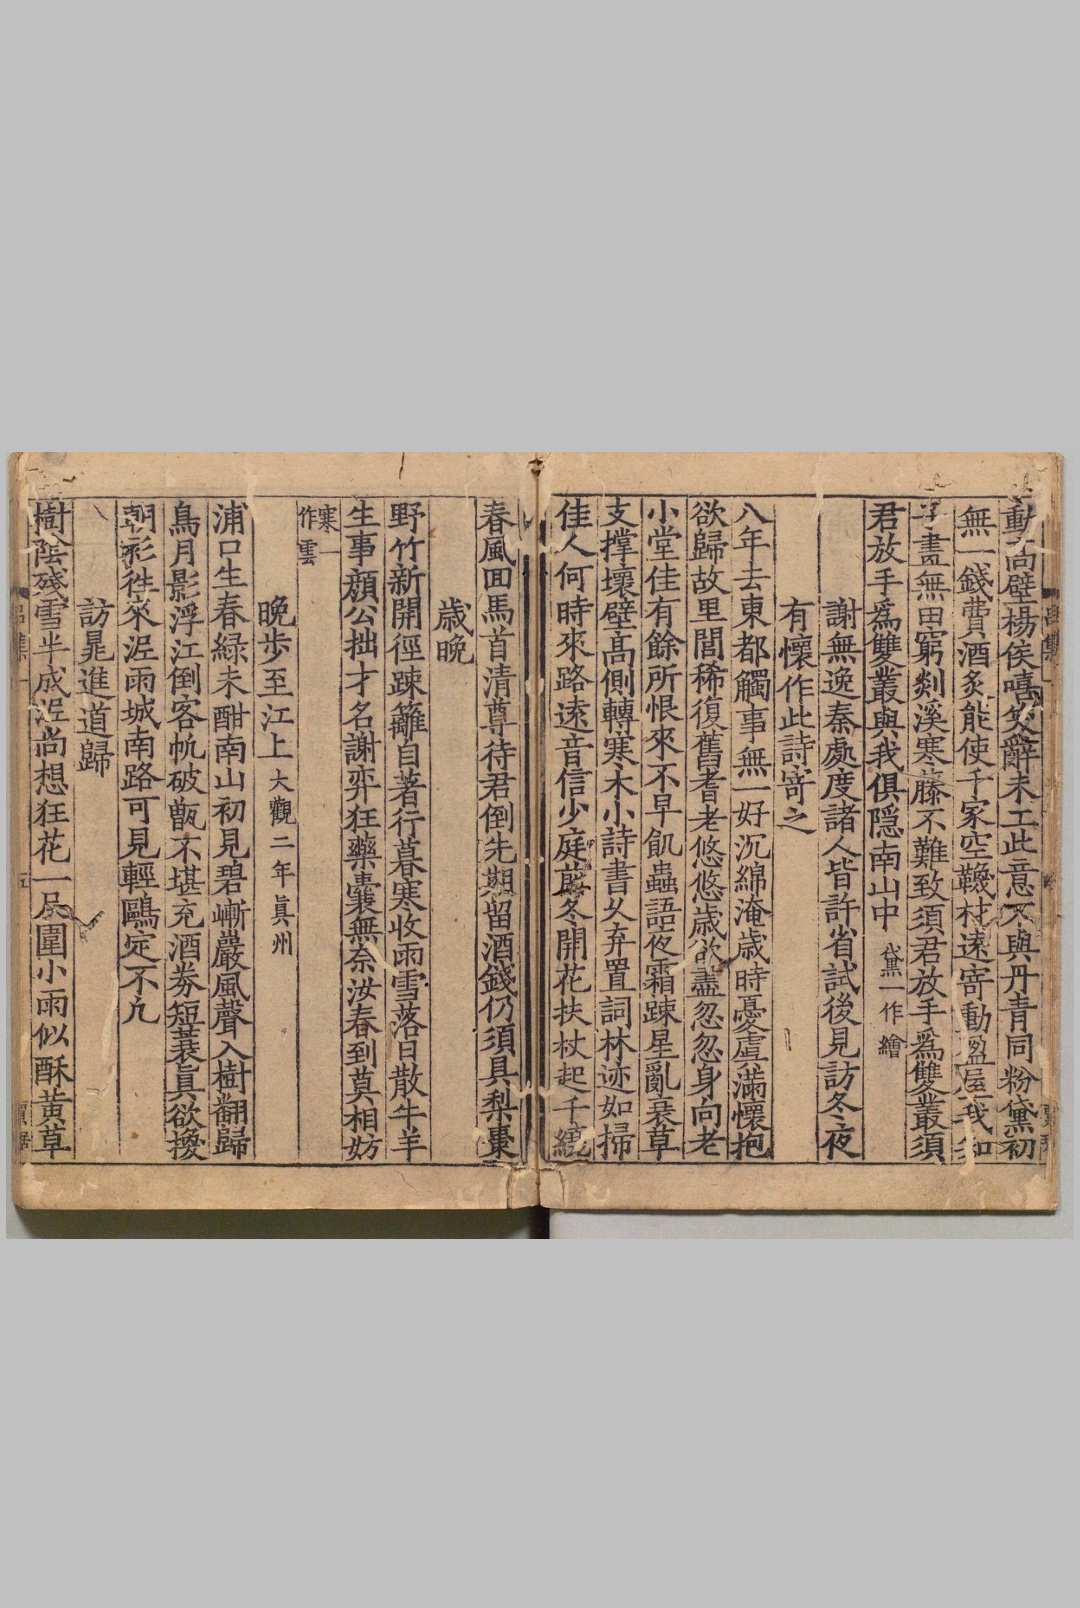 動高壁楊侯嘻笑辭未工此意不與丹青同粉黛初
無一錢費酒炙能使千冢空韈材遠寄動盈屋我知
子盡無田窮剡溪寒藤不難致須君放手爲雙叢須
君放手爲雙叢與我俱隱南山中 黛一作繪
謝無逸秦處度諸人皆許省試後見訪冬夜
有懷作此詩寄之
八年去東都觸事無一好沉綿淹歲時憂虛滿懷抱
欲歸故里閭稀復舊耆老悠悠歲欲盡忽忽身向老
小堂佳有餘所恨來不早飢蟲語夜霜踈星亂衰草
支撑壞壁高側轉寒木小詩書久弃置詞林迹如掃
佳人何時來路遠音信少庭前冬開花扶杖起千繞
春風回馬首清尊待君倒先期留酒錢仍須具梨棗
歲晚
野竹新開徑踈籬自著行暮寒收雨雪落日散牛羊
生事顔公拙才名謝弈狂藥囊無奈汝春到莫相妨
寒一作雲
晚步至江上 大觀二年眞州
浦口生春綠未酣南山初見碧嶄巖風聲入樹翻歸
鳥月影浮江倒客帆破甑不堪充酒券短蓑眞欲換
朝衫徃來泥雨城南路可見輕鷗定不凡
訪晁進道歸
樹陰殘雪半成泥尚想狂花一尺圍小雨似酥黃草